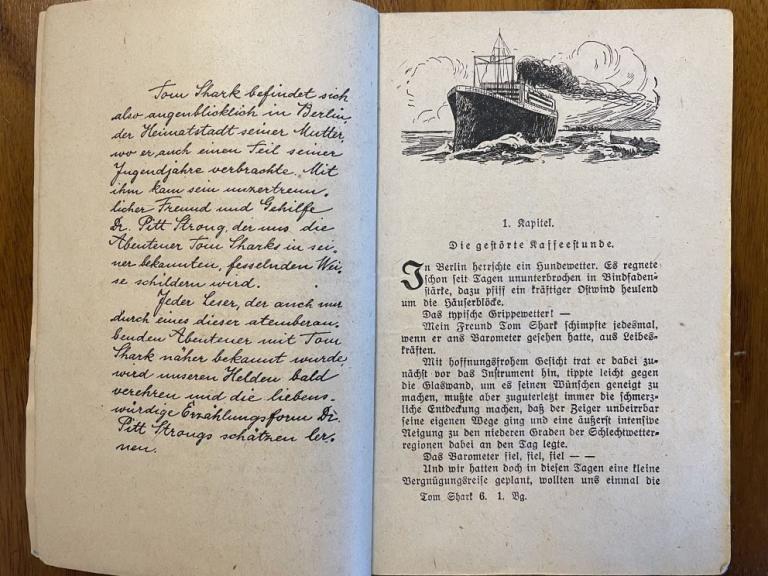 Tom Shark befindet sich
also augenblicklich in Berlin,
der Heimatstadt seiner Mutter,
wo er auch einen Teil seiner
Jugendjahre verbrachte. Mit
ihm kam sein unzertrenn-
licher Freund und Gehilfe
Dr. Pitt Strong, der uns die
Abenteuer Tom Sharks in sei-
ner bekannten, fesselnden Wei-
se schildern wird.
Jeder Leser, der auch nur
durch eines dieser atemberau-
benden Abenteuer mit Tom
Shark näher bekannt wurde,
wird unseren Helden bald
verehren und die liebens-
würdige Erzählungsform Dr.
Pitt Strongs schätzen ler-
nen.
1. Kapitel.
Die gestörte Kaffeestunde.
In Berlin herrschte ein Hundewetter. Es regnete
schon seit Tagen ununterbrochen in Bindfaden-
stärke, dazu pfiff ein kräftiger Ostwind heulend
um die Häuserblöcke.
Das typische Grippewetter! —
Mein Freund Tom Shark schimpfte jedesmal,
wenn er ans Barometer gesehen hatte, aus Leibes-
kräften.
Mit hoffnungsfrohem Gesicht trat er dabei zu-
nächst vor das Instrument hin, tippte leicht gegen
die Glaswand, um es seinen Wünschen geneigt zu
machen, mußte aber zuguterletzt immer die schmerz-
liche Entdeckung machen, daß der Zeiger unbeirrbar
seine eigenen Wege ging und eine äußerst intensive
Neigung zu den niederen Graden der Schlechtwetter-
regionen dabei an den Tag legte.
Das Barometer fiel, fiel, fiel — —
Und wir hatten doch in diesen Tagen eine kleine
Vergnügungsreise geplant, wollten uns einmal die
Tom Shark 6. 1. Bg.